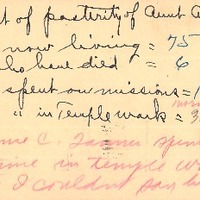 t of pasterity of Aunt A
now living = 75
ho have died = 6
spent on missions = 1
" in Temple work = 3
me C. Tanner spen
time in temple w
I couldnt say h